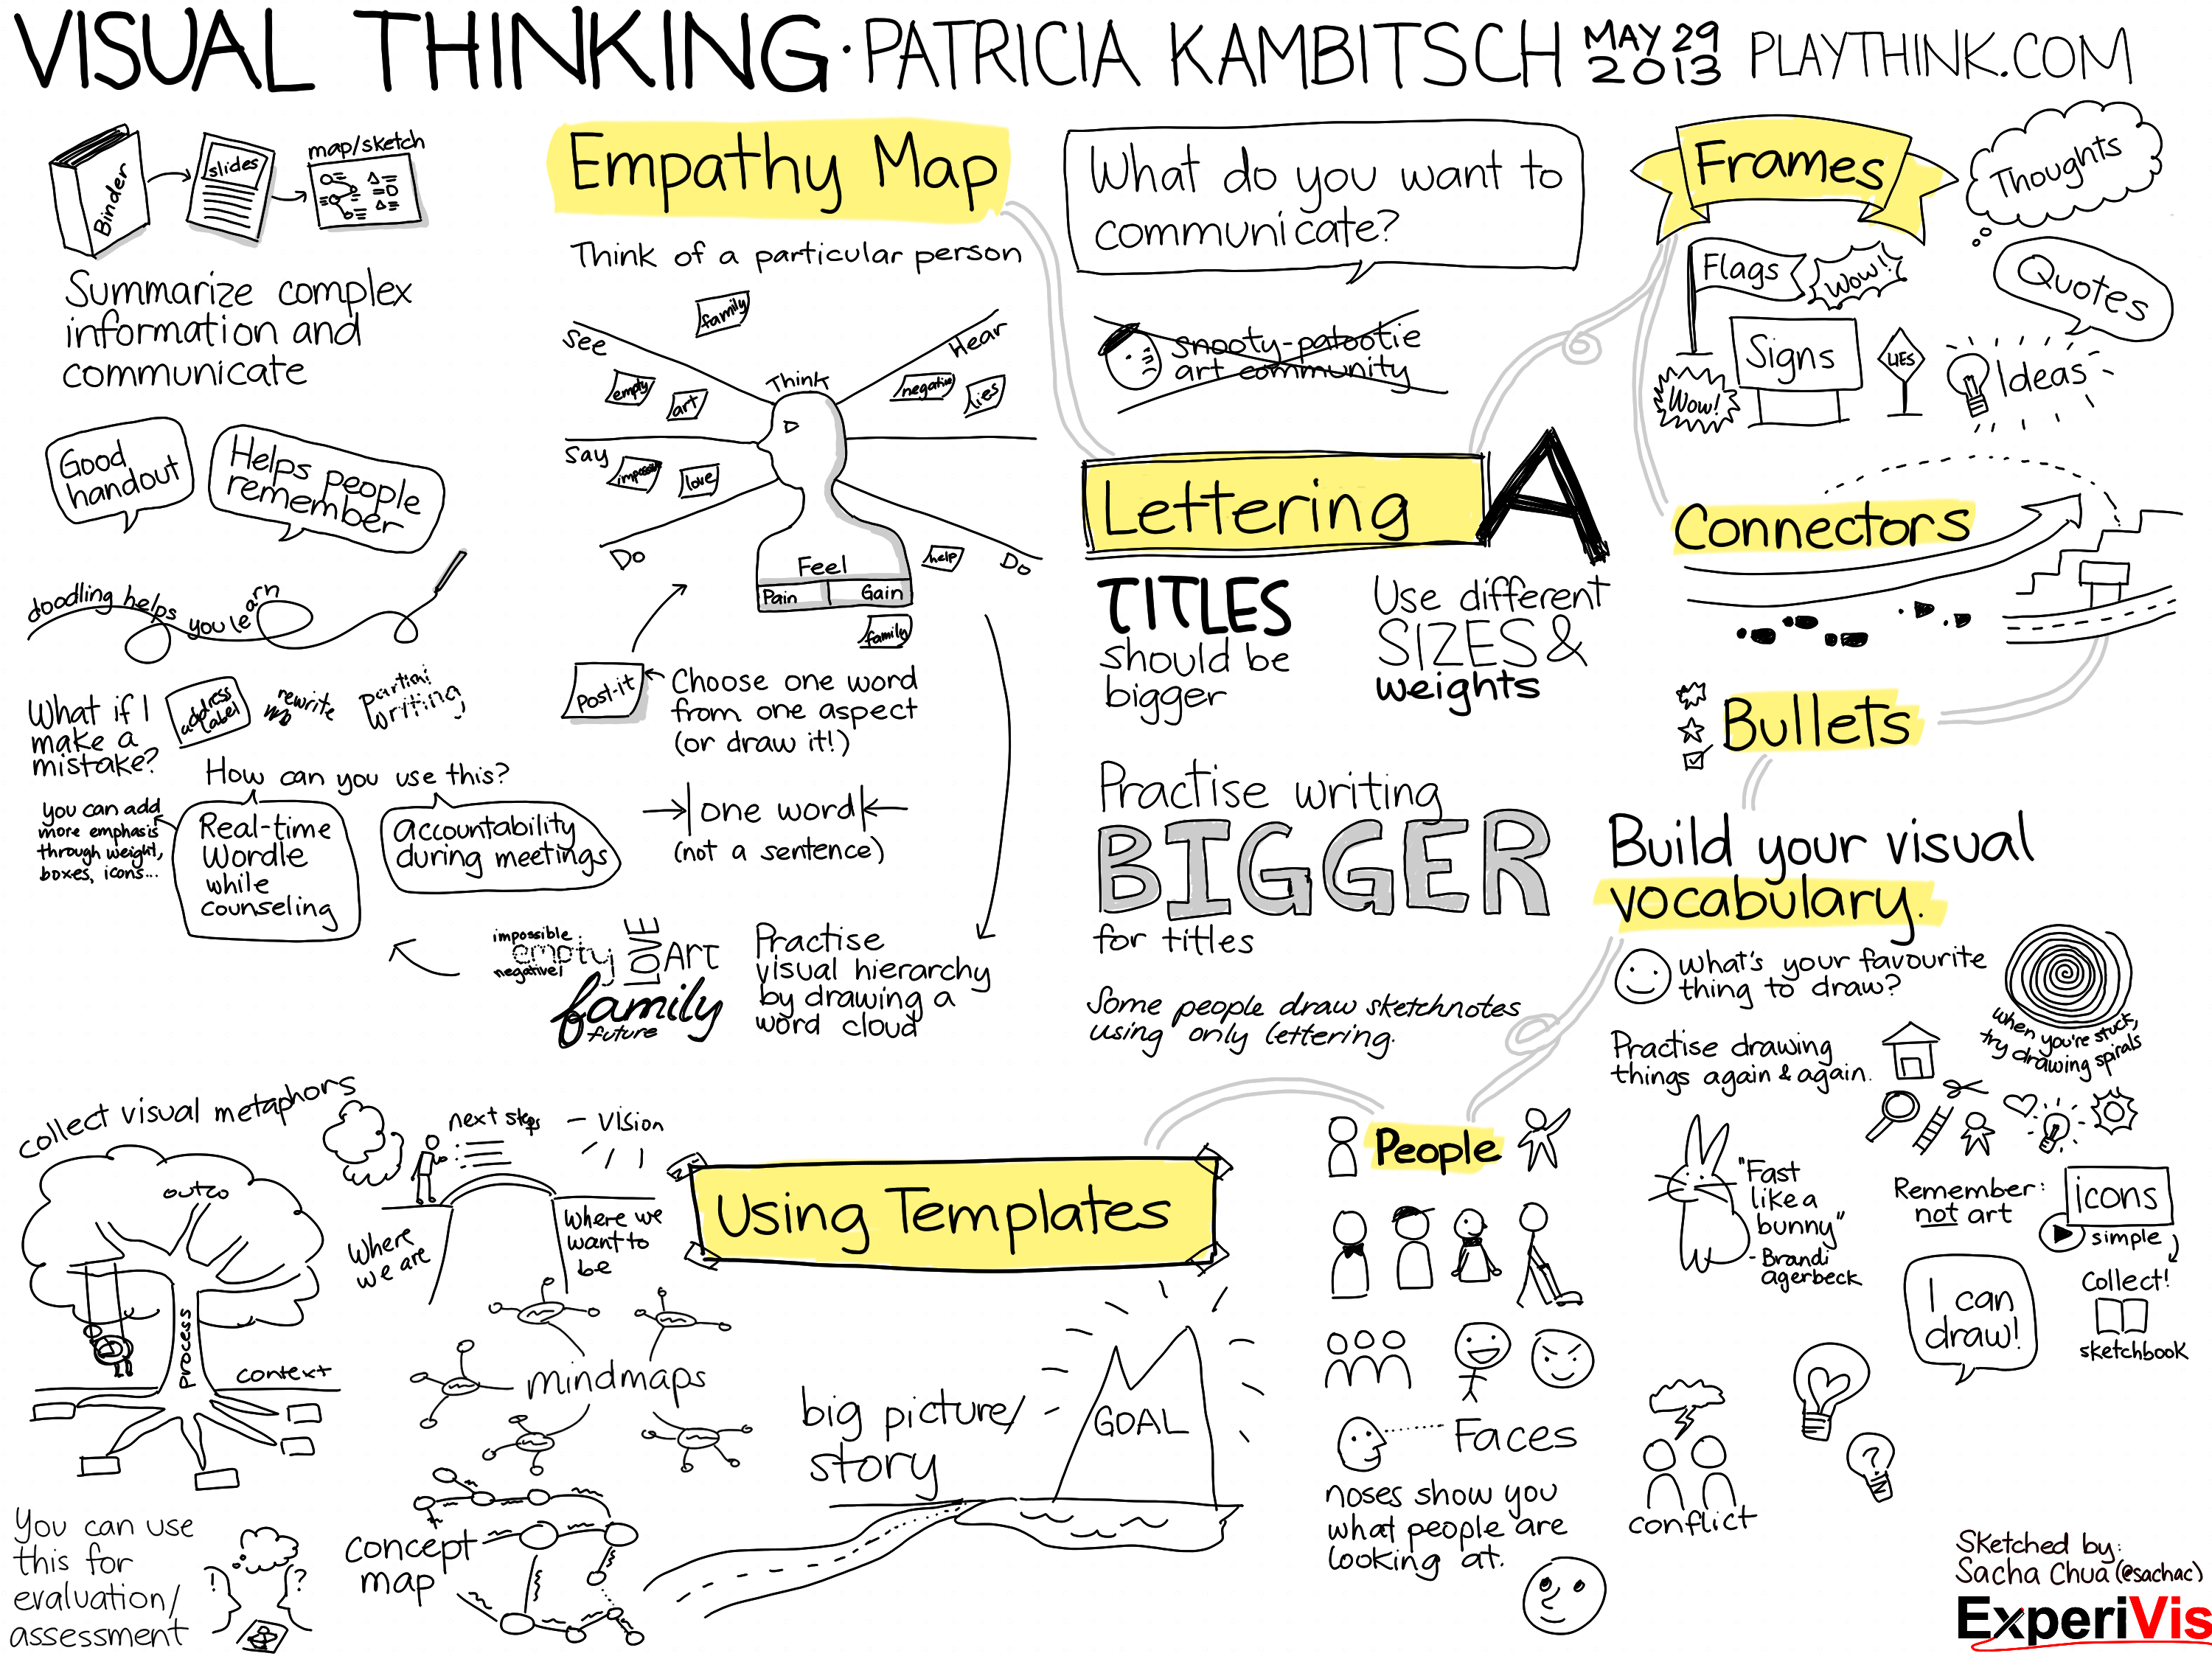 VISUAL THINKING · PATRICIA KAMBITSCH MAY 29 2013 PLAYTHINK.COM
Binder
slides
map/sketch
Summarize complex
information and
communicate
Good
handout
Helps people
remember
doodling helps you learn
What if I
make a
mistake?
address
label
rewrite
partial
writing
How can you use this?
you can add
more emphasis
through weight,
boxes, icons...
Real-time
Wordle
while
counseling
accountability
during meetings
Empathy Map
Think of a particular person
family
See
Hear
Think
empty
art
negative
lies
Say
impossible
love
Do
help
Do
Feel
Pain
Gain
family
Post-it
Choose one word
from one aspect
(or draw it!)
one word
(not a sentence)
impossible
empty
negative!
LOVE
ART
family
future
Practise
visual hierarchy
by drawing a
word cloud
What do you want to
communicate?
snooty-patootie
art community
Lettering A
TITLES
should be
bigger
Use different
SIZES &
weights
Practise writing
BIGGER
for titles
Some people draw sketchnotes
using only lettering.
Frames
Thoughts
Flags
Wow!
Quotes
Signs
LIES
Ideas
Wow!
Connectors
Bullets
Build your visual
vocabulary.
what's your favourite
thing to draw?
when you're stuck,
try drawing spirals
Practise drawing
things again & again.
"Fast
like a
bunny"
- Brandi
agerbeck
Remember:
not art
icons
simple
Collect!
sketchbook
I can
draw!
People
Faces
noses show you
what people are
looking at.
conflict
?
Using Templates
collect visual metaphors
outco
Process
context
next steps
vision
Where
we are
Where we
want to
be
mindmaps
big picture/
story
GOAL
concept
map
You can use
this for
evaluation/
assessment
!
?
Sketched by:
Sacha Chua (@sachac)
ExperiVis